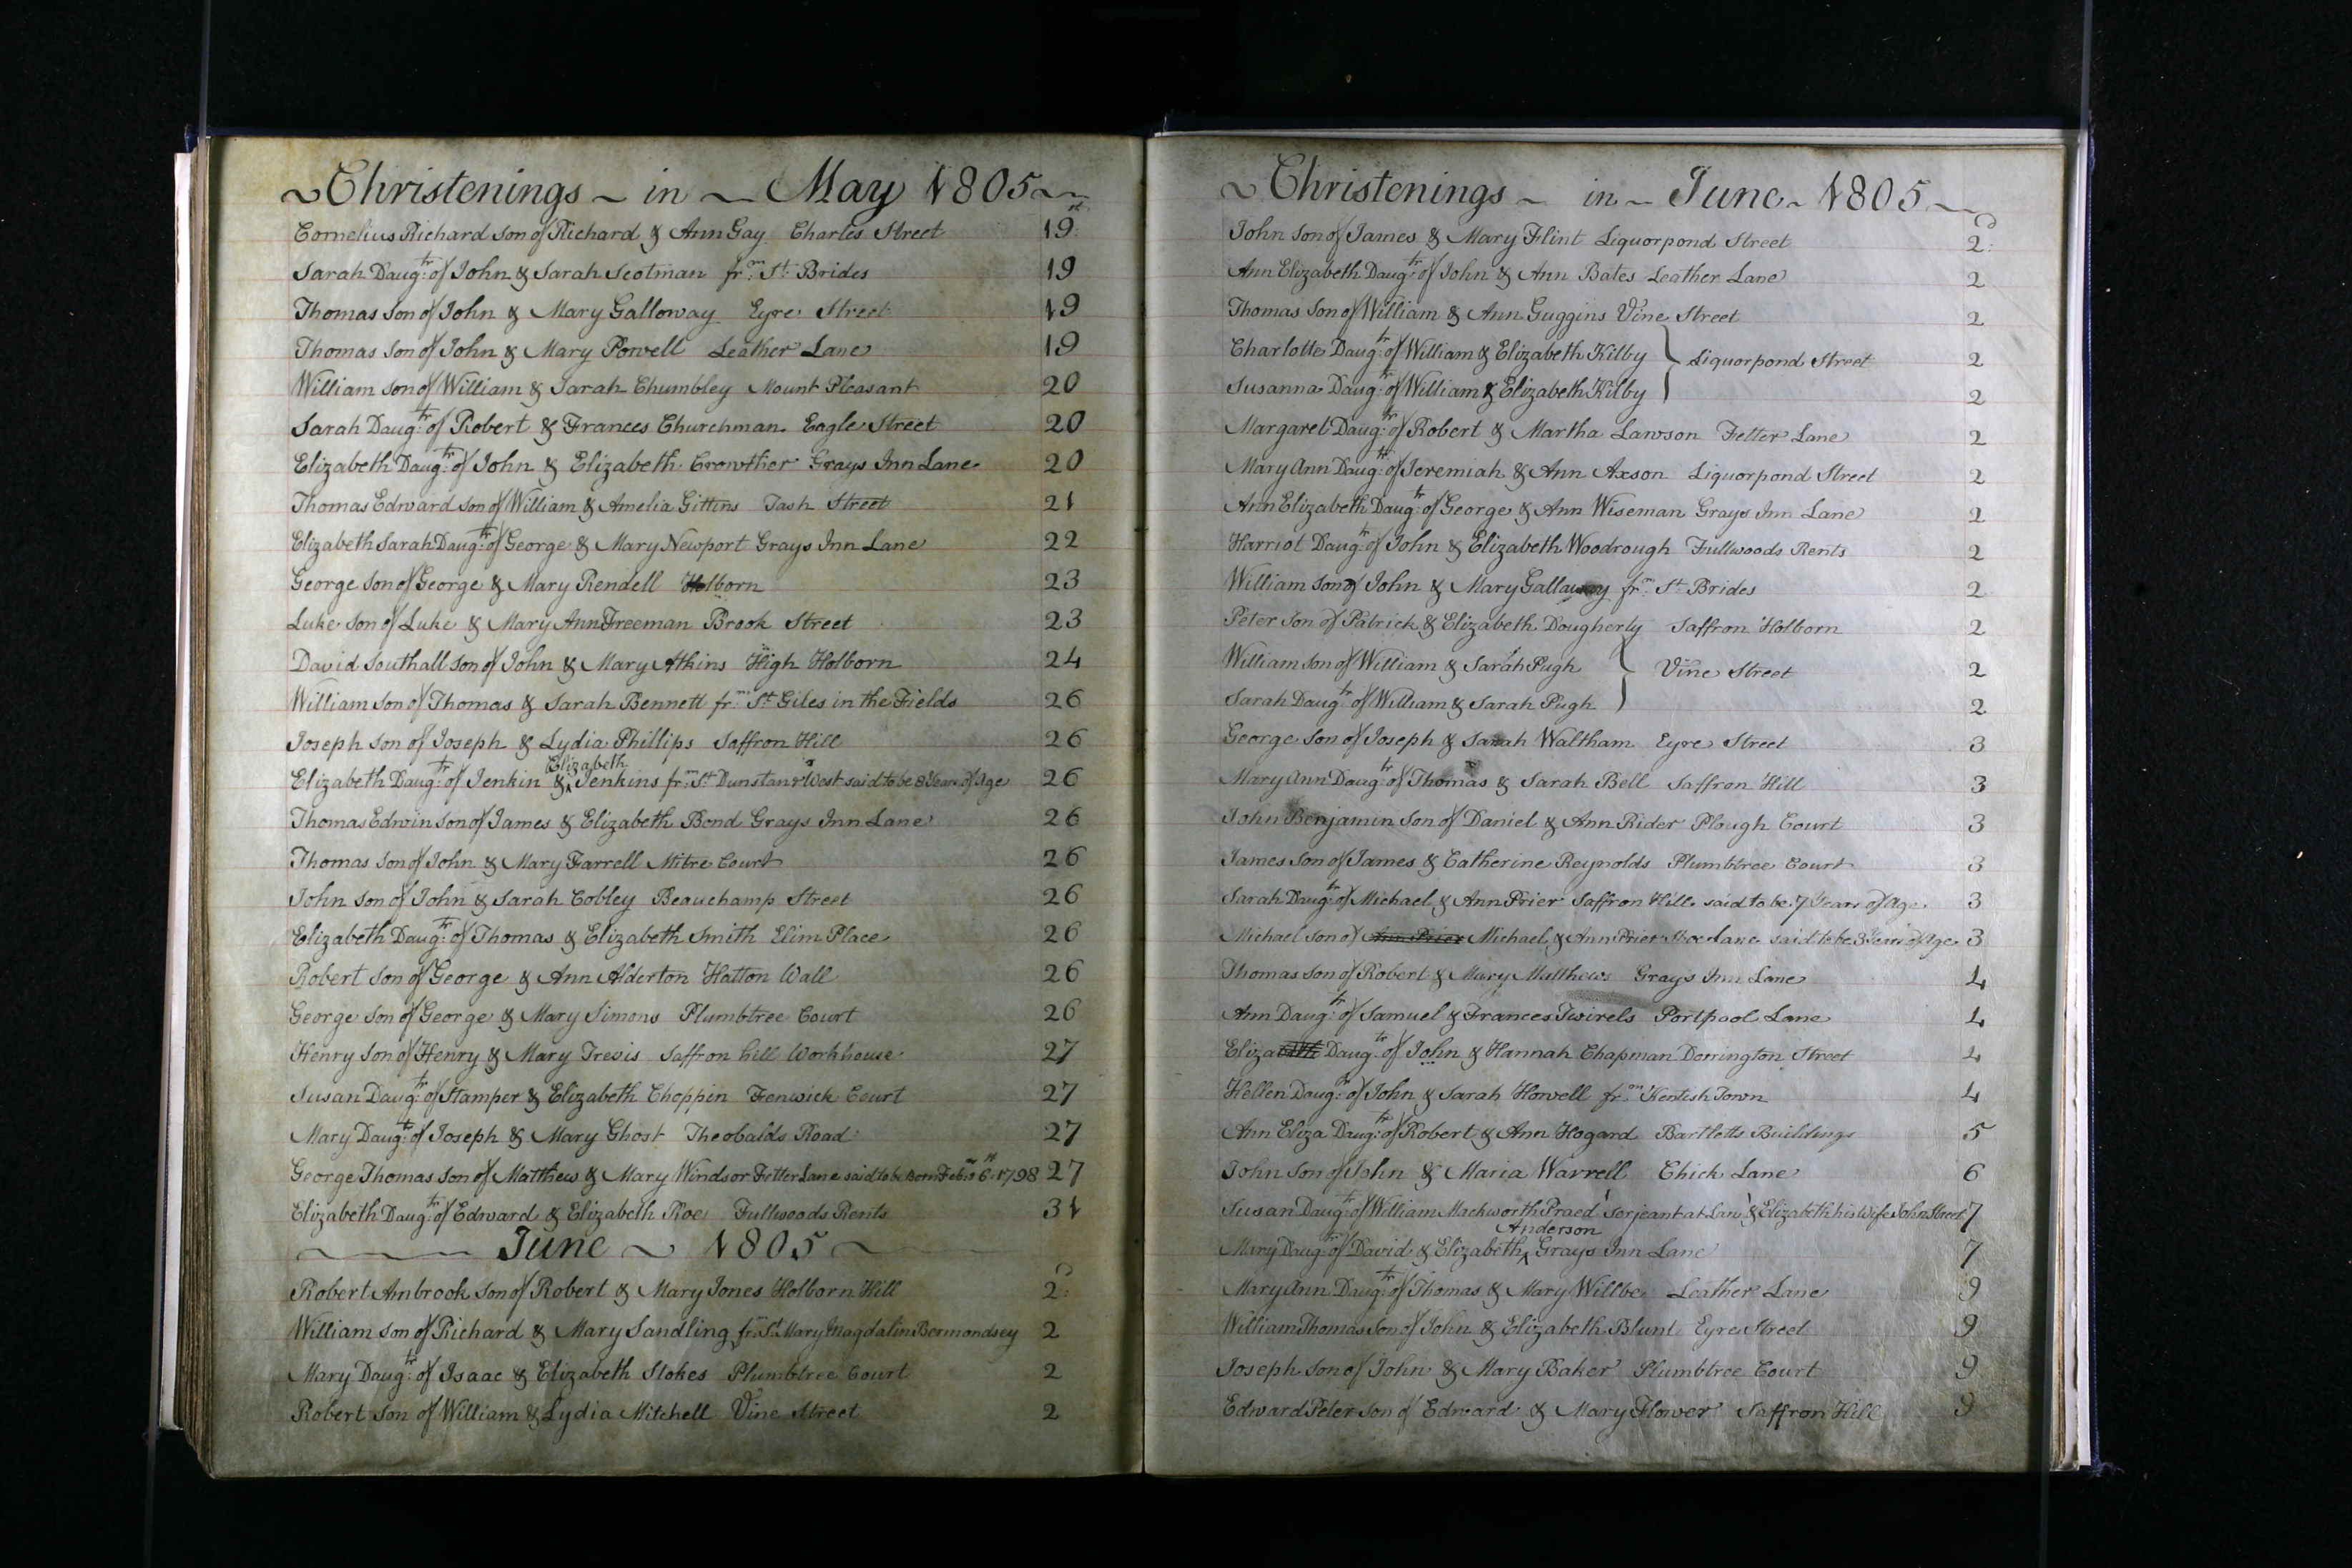 ~Christenings ~ in ~ May 1805~
Cornelius Richard Son of Richard & Ann Gay Charles Street 19th
Sarah Daugtr: of John & Sarah Scotman frm: St: Brides 19
Thomas Son of John & Mary Galloway Eyre Street 19
Thomas Son of John & Mary Powell Leather Lane 19
William Son of William & Sarah Chumbley Mount Pleasant 20
Sarah Daugtr: of Robert & Frances Churchman Eagle Street 20
Elizabeth Daugtr: of John & Elizabeth Crowther Grays Inn Lane 20
Thomas Edward Son of William & Amelia Gittins Tash Street 21
Elizabeth Sarah Daugtr: of George & Mary Newport Grays Inn Lane 22
George Son of George & Mary Rendell Holborn 23
Luke Son of Luke & Mary Ann Freeman Brook Street 23
David Southall Son of John & Mary Atkins High Holborn 24
William Son of Thomas & Sarah Bennett frm: St: Giles in the Fields 26
Joseph Son of Joseph & Lydia Phillips Saffron Hill 26
Elizabeth Daugtr: of Jenkin & Elizabeth Jenkins frm: St: Dunstans West said to be 8 Years of Age 26
Thomas Edwin Son of James & Elizabeth Bond Grays Inn Lane 26
Thomas Son of John & Mary Farrell Mitre Court 26
John Son of John & Sarah Cobley Beauchamp Street 26
Elizabeth Daugtr: of Thomas & Elizabeth Smith Elim Place 26
Robert Son of George & Ann Alderton Hatton Wall 26
George Son of George & Mary Simons Plumbtree Court 26
Henry Son of Henry & Mary Trevis Saffron hill Workhouse 27
Susan Daugtr: of Stamper & Elizabeth Choppin Fenwick Court 27
Mary Daugtr: of Joseph & Mary Ghost Theobalds Road 27
George Thomas Son of Matthew & Mary Windsor Fetter Lane said to be Born 6th 1798 27
Elizabeth Daugtr: of Edward & Elizabeth Roe Fullwoods Rents 31
~ June ~ 1805 ~
Robert Ambrook Son of Robert & Mary Jones Holborn Hill 2d:
William Son of Richard & Mary Sandling frm St: Mary Magdalin Bermondsey 2
Mary Daugtr: of Isaac & Elizabeth Stokes Plumbtree Court 2
Robert Son of William & Lydia Mitchell Vine Street 2
~ Christenings ~ in ~ June ~ 1805 ~
John Son of James & Mary Flint Liquorpond Street 2d:
Ann Elizabeth Daugtr: of John & Ann Bates Leather Lane 2
Thomas Son of William & Ann Guggins Vine Street 2
Charlotte Daugtr: of William & Elizabeth Kilby } Liquorpond Street 2
Susanna Daugtr: of William & Elizabeth Kilby 2
Margaret Daugtr: of Robert & Martha Lawson Fetter Lane 2
Mary Ann Daugtr: of Jeremiah & Ann Axson Liquorpond Street 2
Ann Elizabeth Daugtr: of George & Ann Wiseman Grays Inn Lane 2
Harriot Daugtr: of John & Elizabeth Woodrough Fullwoods Rents 2
William Son of John & Mary Gallaway frm: St: Brides 2
Peter Son of Patrick & Elizabeth Dougherty Saffron Holborn 2
William Son of William & Sarah Pugh } Vine Street 2
Sarah Daugtr of William & Sarah Pugh 2
George Son of Joseph & Sarah Waltham Eyre Street 3
Mary Ann Daugtr: of Thomas & Sarah Bell Saffron Hill 3
John Benjamin Son of Daniel & Ann Rider Plough Court 3
James Son of James & Catherine Reynolds Plumbtree Court 3
Sarah Daugtr: of Michael & Ann Prier Saffron Hill said to be 7 Years of Age 3
Michael Son of Ann Prier Michael & Ann Prier Shoe Lane said to be 3 Years of Age 3
Thomas Son of Robert & Mary Matthews Grays Inn Lane 4
Ann Daugtr: of Samuel & Frances Twirels Portpool Lane 4
Elizabeth Daugtr of John & Hannah Chapman Dorrington Street 4
Hellen Daugtr: of John & Sarah Howell frm: Kentish Town 4
Ann Eliza Daugtr: of Robert & Ann Hogard Bartletts Buildings 5
John Son of John & Maria Warrell Chick Lane 6
Susan Daugtr: of William Mackworth Praed Serjeant at Law & Elizabeth his Wife John Street 7
Mary Daugtr: of David & Elizabeth Anderson Grays Inn Lane 7
Mary Ann Daugtr: of Thomas & Mary Willbe Leather Lane 9
William Thomas Son of John & Elizabeth Blunt Eyre Street 9
Joseph Son of John & Mary Baker Plumbtree Court 9
Edward Peter Son of Edward & Mary Flower Saffron Hill 9